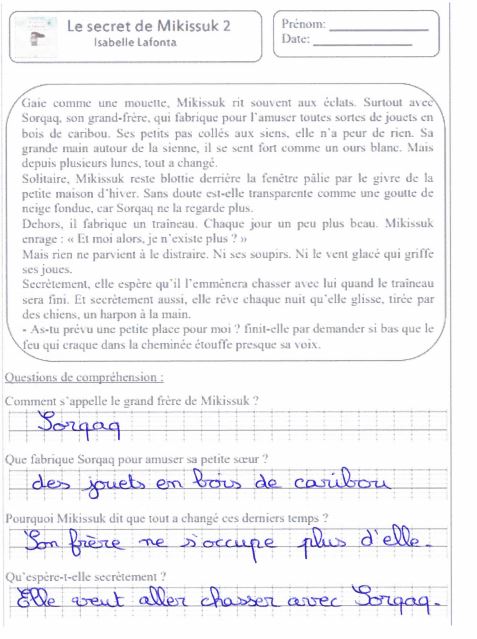 Le secret de Mikissuk 2
Isabelle Lafonta
Prénom:
Date:
Gaie comme une mouette, Mikissuk rit souvent aux éclats. Surtout avec
Sorqaq, son grand-frère, qui fabrique pour l'amuser toutes sortes de jouets en
bois de caribou. Ses petits pas collés aux siens, elle n'a peur de rien. Sa
grande main autour de la sienne, il se sent fort comme un ours blanc. Mais
depuis plusieurs lunes, tout a changé.
Solitaire, Mikissuk reste blottie derrière la fenêtre pâlie par le givre de la
petite maison d'hiver. Sans doute est-elle transparente comme une goutte de
neige fondue, car Sorqaq ne la regarde plus.
Dehors, il fabrique un traîneau. Chaque jour un peu plus beau. Mikissuk
enrage : « Et moi alors, je n'existe plus ? »
Mais rien ne parvient à le distraire. Ni ses soupirs. Ni le vent glacé qui griffe
ses joues.
Secrètement, elle espère qu'il l'emmènera chasser avec lui quand le traîneau
sera fini. Et secrètement aussi, elle rêve chaque nuit qu'elle glisse, tirée par
des chiens, un harpon à la main.
- As-tu prévu une petite place pour moi ? finit-elle par demander si bas que le
feu qui craque dans la cheminée étouffe presque sa voix.
Questions de compréhension :
Comment s'appelle le grand frère de Mikissuk ?
Sorqaq
Que fabrique Sorqaq pour amuser sa petite sœur ?
des jouets en bois de caribou
Pourquoi Mikissuk dit que tout a changé ces derniers temps ?
Son frère ne s'occupe plus d'elle.
Qu'espère-t-elle secrètement ?
Elle veut aller chasser avec Sorqaq.